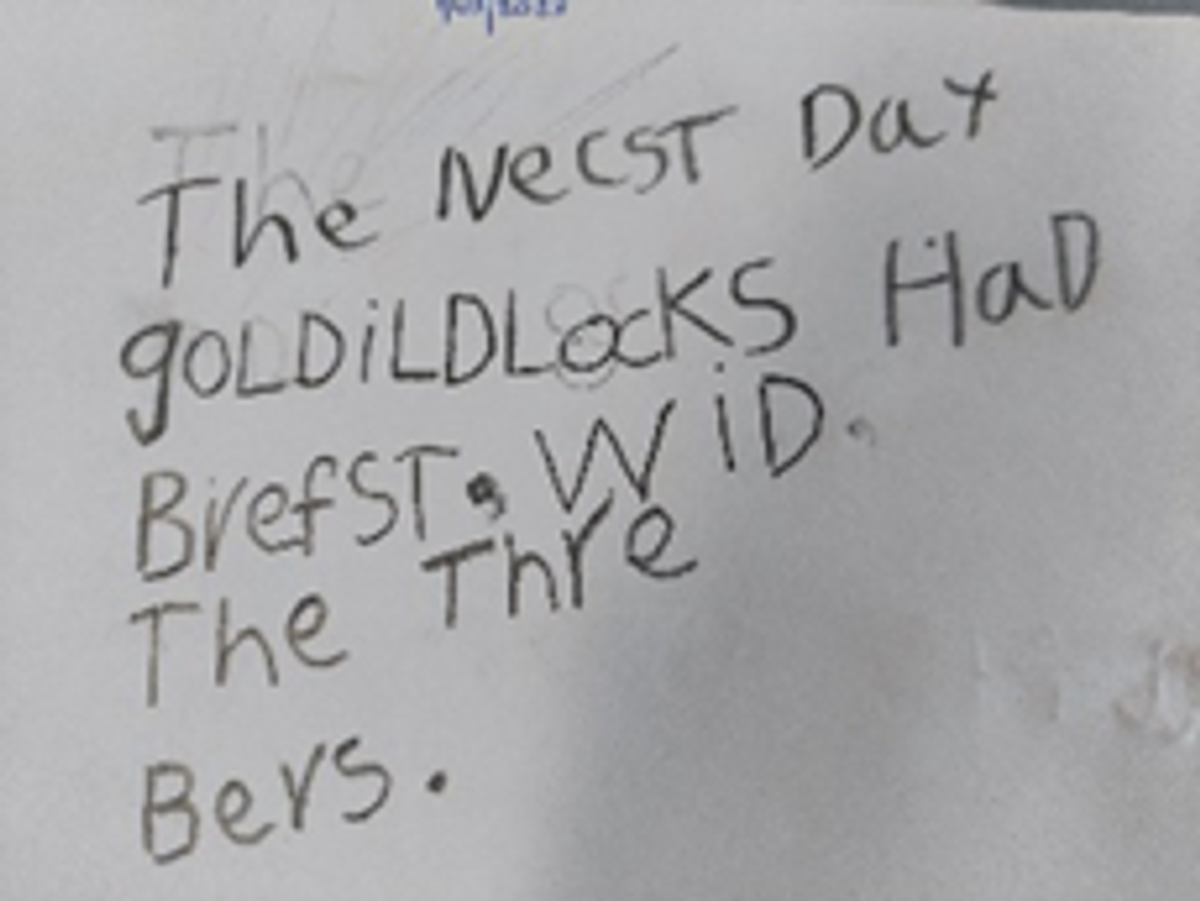 The Necst Day
goLDiLDLocKS HaD
BrefST. WiD.
The Thre
Bers.